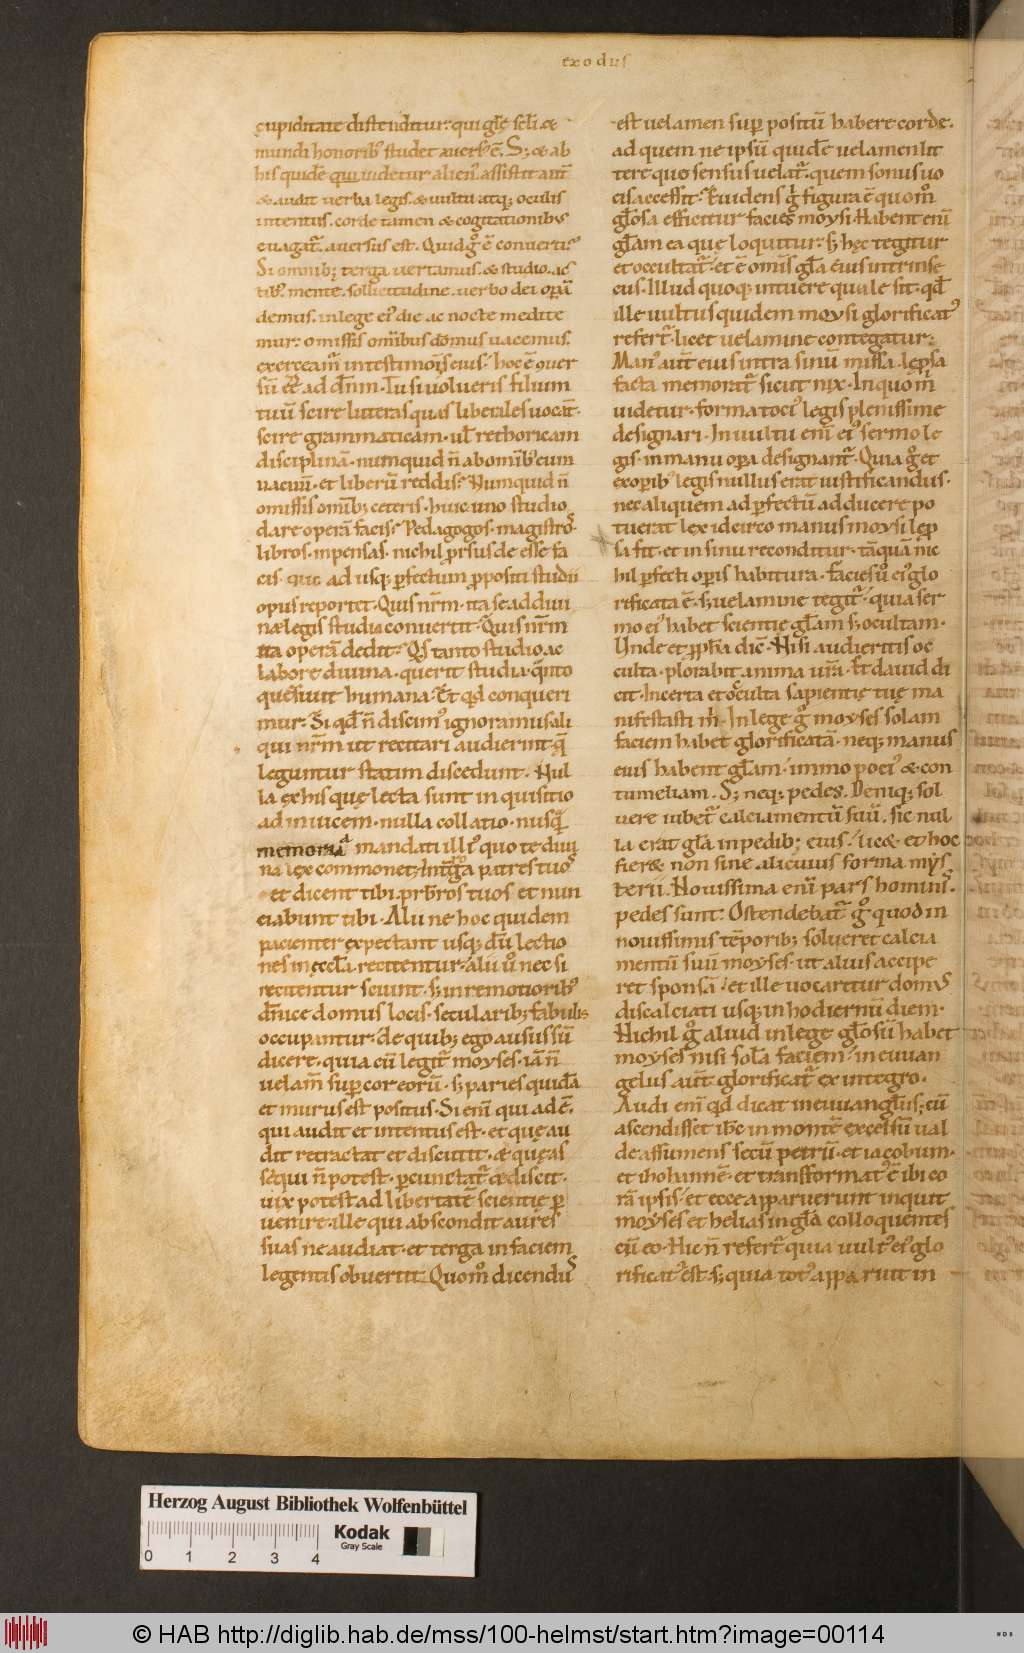 exodus
cupiditate distenditur. qui glę scli. &
mundi honorib; studet auersus ē. S; & ab
his quidē qui uidetur alien'. assistit aut̄
&. audit uerba legis. & uultu atq; oculis
intentus. corde tamen & cogitationibus
euagat̄. auersus est. Quid gͦ ē conuerti?
Si omnib; terga uertamus. & studio. ac
tib; mente. sollicitudine. uerbo dei operā
demus. in lege ei' die ac nocte medite
mur. omissis om̄ibus domus uacemus.
exerceam̄ in testimoīs eius. hoc ē ꝯuer
sū eē ad dn̄m. Tu si uolueris filium
tuū scire litteras quas liberales uocat̄.
scire grammaticam. ul' rethoricam
disciplinā. numquid n̄ ab omīb; eum
uacuū. et liberū reddis? Numquid n̄
omissis omīb; ceteris. huic uno studio
dare operā facis? Pedagogos. magistros.
libros. inpensas. nichil prorsus de esse fa
cis. quo ad usq; perfectum propositi studii
opus reportet. Quis nr̄m ita se ad diui
nælegis studia conuertit. Quis nr̄m
ita operā dedit. Qs tanto studio. ac
labore diuina querit studia. qͣnto
quesiuit humana. Et qd conqueri
mur. Si qd n̄ discim' ignoramus ali
qui nr̄m ut recitari audierint q̄
leguntur statim discedunt. Nul
la ex his quę lecta sunt inquisitio
ad inuicem. nulla collatio. nusq̄
memoria mandati illi' quo te diui
na lex commonet. Interroga patres tuos
et dicent tibi. prb̄ros tuos et nun
ciabunt tibi. Alii ne hoc quidem
pacienter expectant usq; dū lectio
nes in ęccl'a recitentur. alii uͦ nec si
recitentur sciunt. s; in remotiorib;
dn̄ice domus locis. secularib; fabulis
occupantur. de quib; ego ausus sū
dicere. quia cū legit̄ moyses. iā n̄
uelam̄ super cor eorū. s; paries quidā
et murus est positus. Si enī qui ad ē.
qui audit et intentus est. et quę au
dit retractat et discutit. & quę as
sequi n̄ potest. percunctat̄ & discit.
uix potest ad libertatē scientię per
uenire. ille qui abscondit aures
suas ne audiat. et terga in faciem
legentis obuertit. Quomͦ dicend'
est uelamen super positū habere corde.
ad quem ne ipsū quidē uelamen lit
terę quo sensus uelat̄. quem sonus uo
cis accessit. Euidens gͦ figura ē quomͦ
glosa efficitur facies moysi. Habent enī
gl'am ea quę loquitur. s; hęc tegitur
et occultat̄. et ē om̄is gl'a eius intrinse
cus. Illud quoq; intuere quale sit. qd
ille uultus quidem moysi glorificat'
refert̄. licet uelamine contegatur.
Man' aut̄ eius intra sinū missa. leprosa
facta memorat̄ sicut nix. In quo m̄
uidetur. forma toci' legis plenissime
designari. In uultu enī ei' sermo le
gis. in manu opera designant̄. Quia gͦ et
ex operib; legis nullus erat iustificandus.
nec aliquem ad perfectū adducere po
tuerat lex idcirco manus moysi lepro
sa fit. et in sinu reconditur. tāquā nic
hil perfecti operis habitura. facies uͦ ei' glo
rificata ē. s; uelamine tegit̄. quia ser
mo ei' habet scientię gl'am s; ocultam.
Unde et propha dic̄. Nisi audieritis oc
culta. plorabit anima uīa. Et dauid di
cit. Incerta et occulta sapientię tuę ma
nifestasti m'. In lege gͦ moyses solam
faciem habet glorificatā. neq; manus
eius habent gl'am. immo poci' & con
tumeliam. S; neq; pedes. Deniq; sol
uere iubet̄ calciamentū suū. sic nul
la erat gl'a in pedib; eius. lic& et hoc
fier& non sine alicuius forma mys
terii. Nouissima enī pars hominis.
pedes sunt. Ostendebat̄ gͦ quod in
nouissimis tēporib; solueret calcia
mentū suū moyses. ut alius accipe
ret sponsā. et ille uocaretur domus
discalciati usq; in hodiernū diem.
Nichil gͦ aliud in lege glosū habet
moyses nisi solā faciem. in euuan
gelus aut̄ glorificat̄ ex integro.
Audi enī qd dicat in euuangl'us; cū
ascendisset ihc in montē excelsū ual
de. assumens secū petrū. et iacobum.
et iohannē. et transformat' ē ibi eo
rā ipsis. et ecce apparuerunt inquit
moyses et helias in gl'a colloquentes
cū eo. Hic n̄ refert̄ quia uult' ei' glo
rificat' est. s; quia tot' apparuit in
Herzog August Bibliothek Wolfenbüttel
Kodak
Gray Scale
0 1 2 3 4
© HAB http://diglib.hab.de/mss/100-helmst/start.htm?image=00114